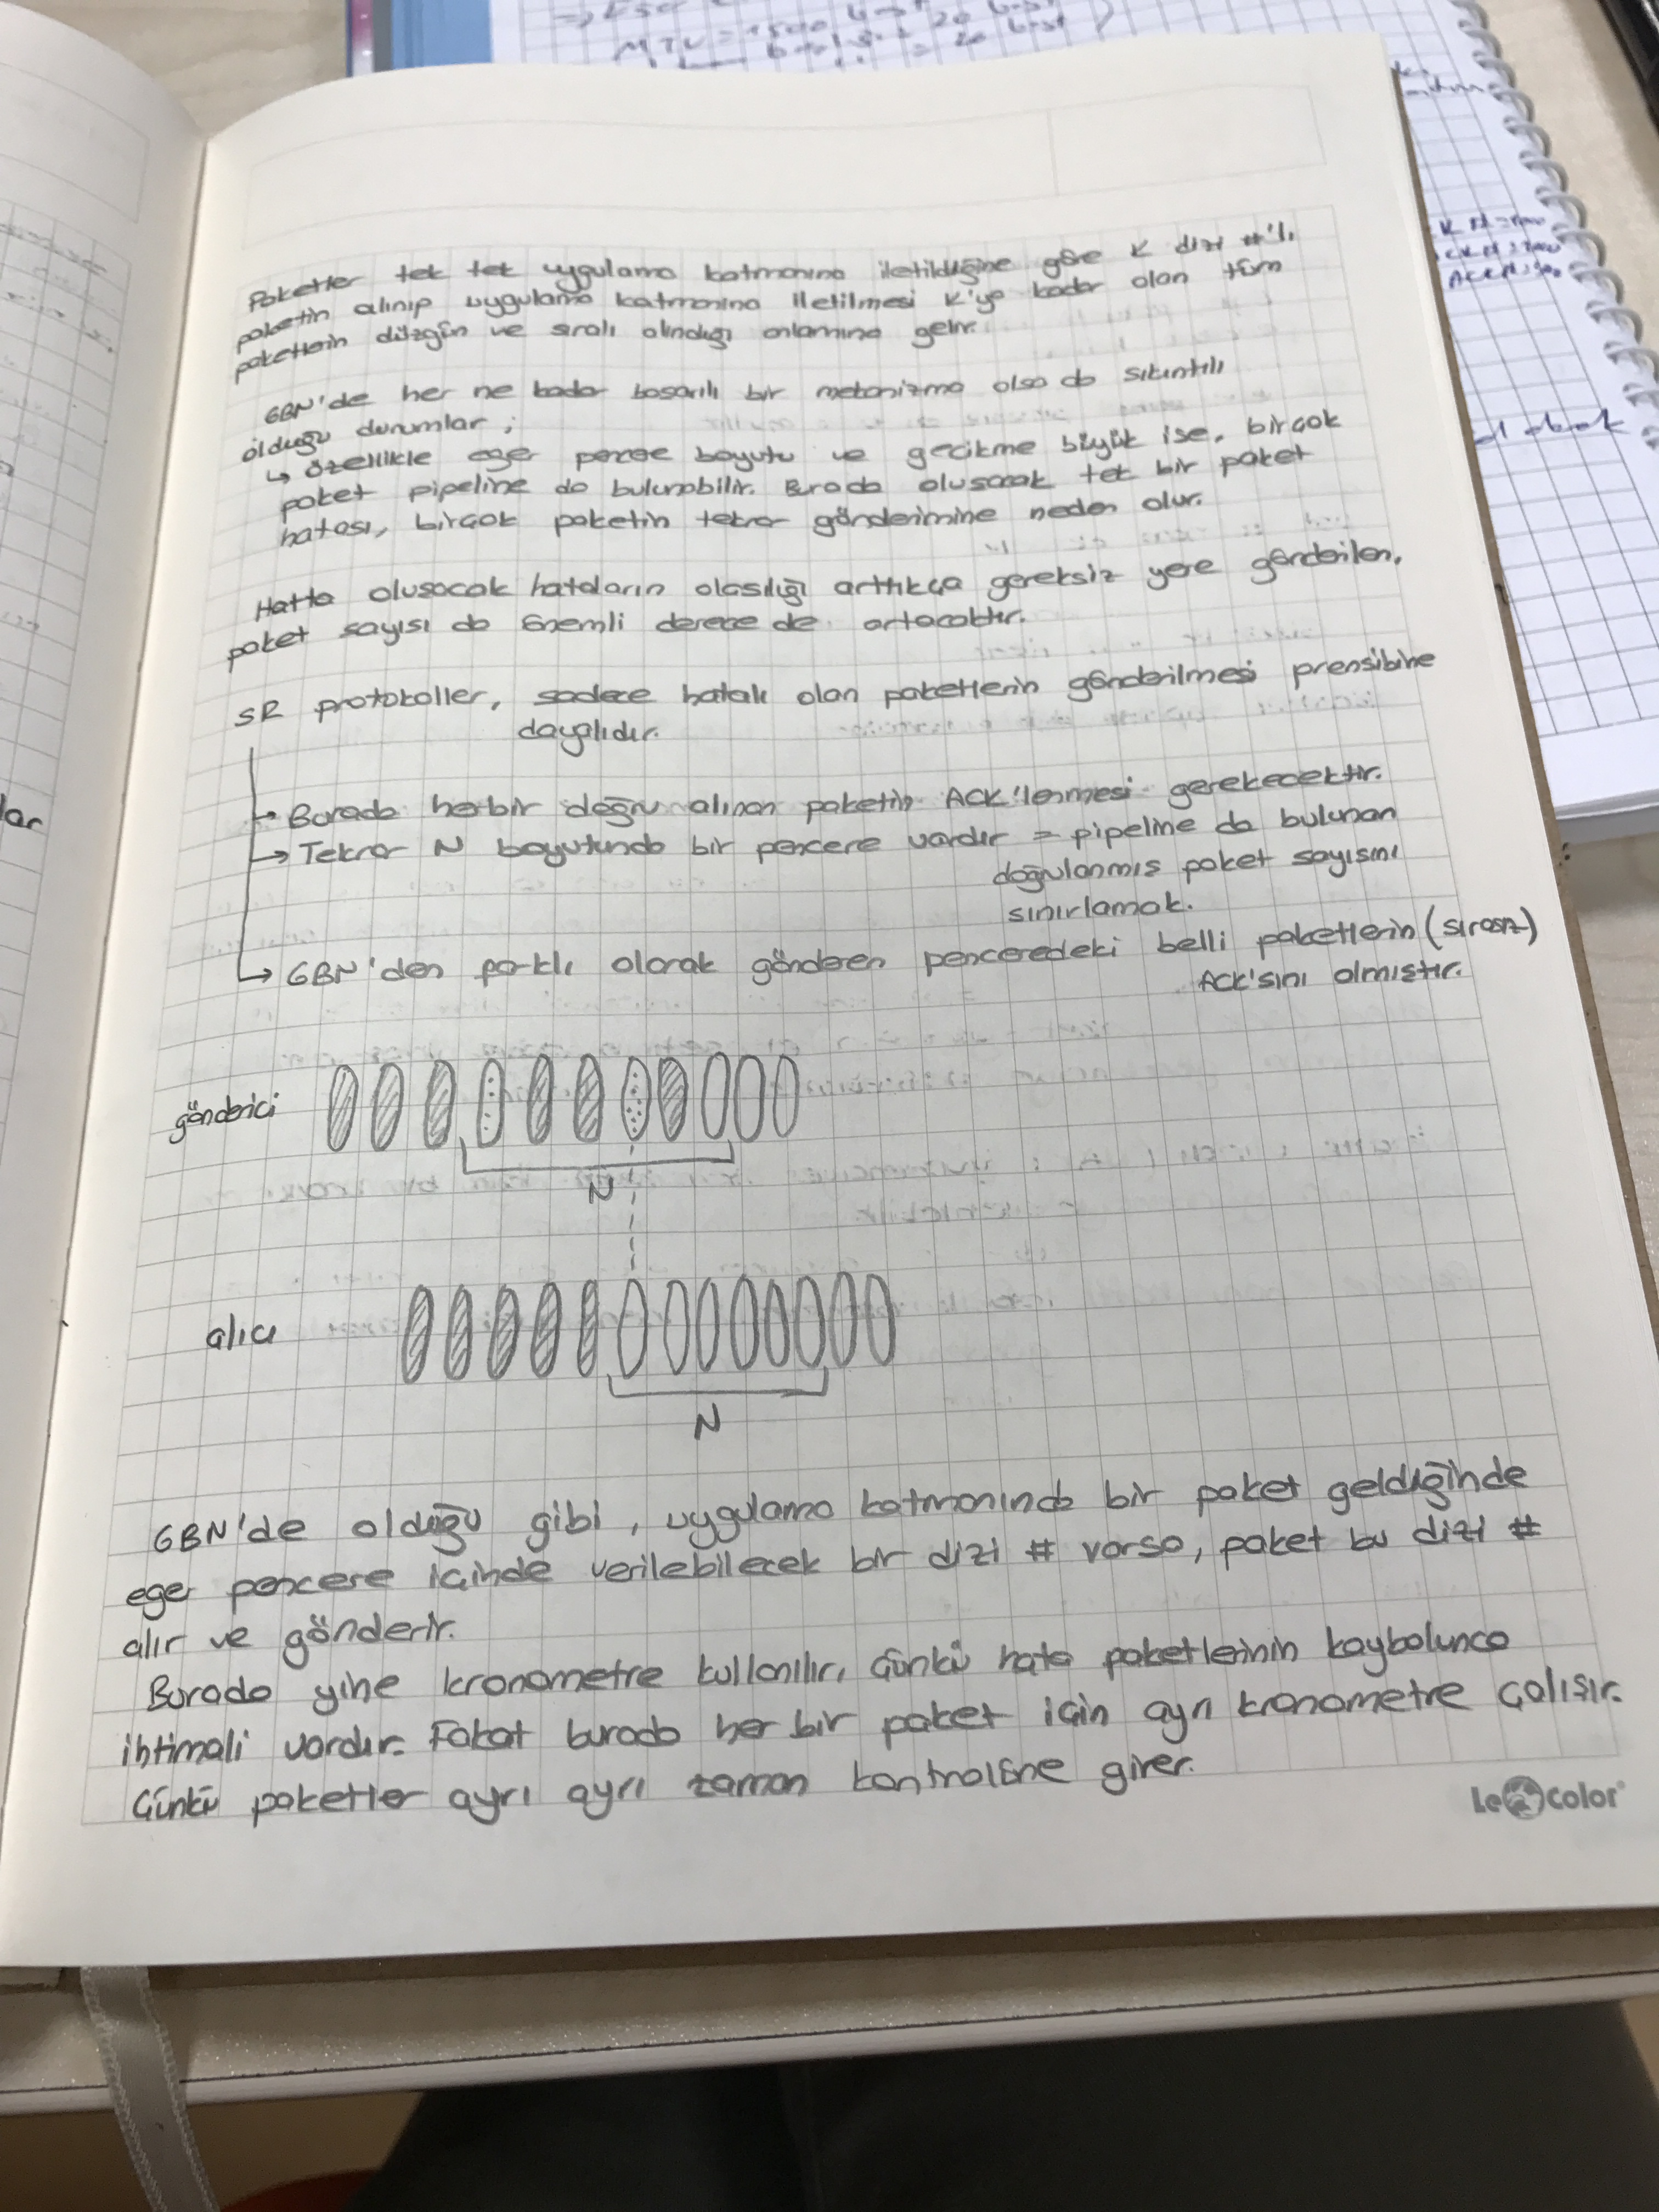 MTU = 1500
Paketler tek tek uygulama katmanına iletildiğine göre K dizi #'lı
paketin alınıp uygulama katmanına iletilmesi K'ya kadar olan tüm
paketlerin düzgün ve sıralı alındığı anlamına gelir.
GBN'de her ne kadar başarılı bir mekanizma olsa da sıkıntılı
olduğu durumlar ;
↳ özellikle eger pencere boyutu ve gecikme büyük ise, birçok
paket pipeline da bulunabilir. Burada oluşacak tek bir paket
hatası, birçok paketin tekrar gönderimine neden olur.
Hatta oluşacak hataların olasılığı arttıkça gereksiz yere gönderilen,
paket sayısı da önemli derece de artacaktır.
SR protokoller, sadece hatalı olan paketlerin gönderilmesi prensibine
dayalıdır.
→ Burada herbir doğru alınan paketin ACK'lenmesi gerekecektir.
→ Tekrar N boyutunda bir pencere vardır = pipeline da bulunan
doğrulanmış paket sayısını
sınırlamak.
→ GBN'den farklı olarak gönderen penceredeki belli paketlerin (sırasız)
ACK'sını almıştır.
gönderici
N
alıcı
N
GBN'de olduğu gibi, uygulama katmanında bir paket geldiğinde
eger pencere içinde verilebilecek bir dizi # varsa, paket bu dizi #
alır ve gönderir.
Burada yine kronometre kullanılır, Çünkü hata paketlerinin kaybolunca
ihtimali vardır. Fakat burada her bir paket için ayrı kronometre çalışır.
Çünkü paketler ayrı ayrı zaman kontrolüne girer.
Le Color
lar